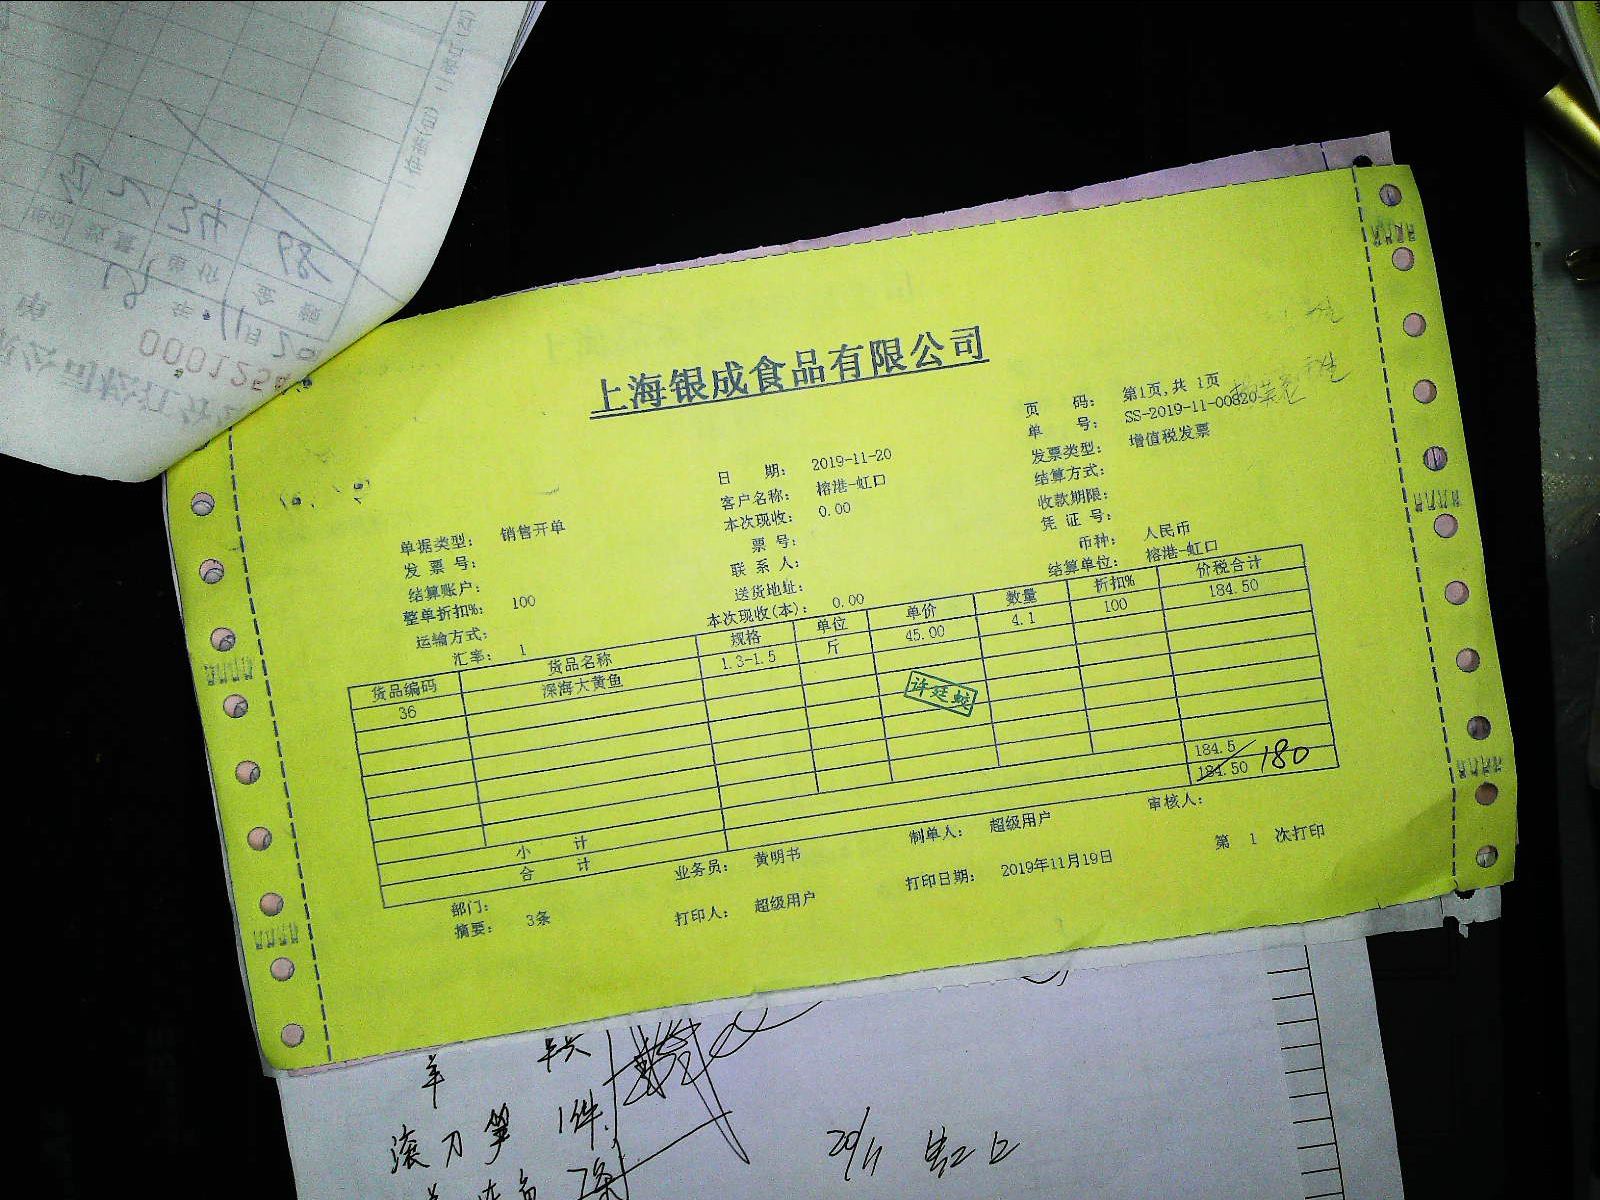 00012
上海银成食品有限公司
页 码: 第1页,共 1页
单 号: SS-2019-11-00820
日 期: 2019-11-20 发票类型: 增值税发票
客户名称: 榕港-虹口 结算方式:
本次现收: 0.00 收款期限:
单据类型: 销售开单 票 号: 凭 证 号:
发 票 号: 联 系 人: 币种: 人民币
结算账户: 送货地址: 结算单位: 榕港-虹口
整单折扣%: 100 本次现收(本): 0.00
运输方式:
汇率: 1
货品编码 货品名称 规格 单位 单价 数量 折扣% 价税合计
36 深海大黄鱼 1.3-1.5 斤 45.00 4.1 100 184.50
许廷蜓
小 计 184.5
合 计 184.50 180
部门: 业务员: 黄明书 制单人: 超级用户 审核人:
摘要: 3条 打印人: 超级用户 打印日期: 2019年11月19日 第 1 次打印
滚刀笋 1件
2条
20/11 虹口